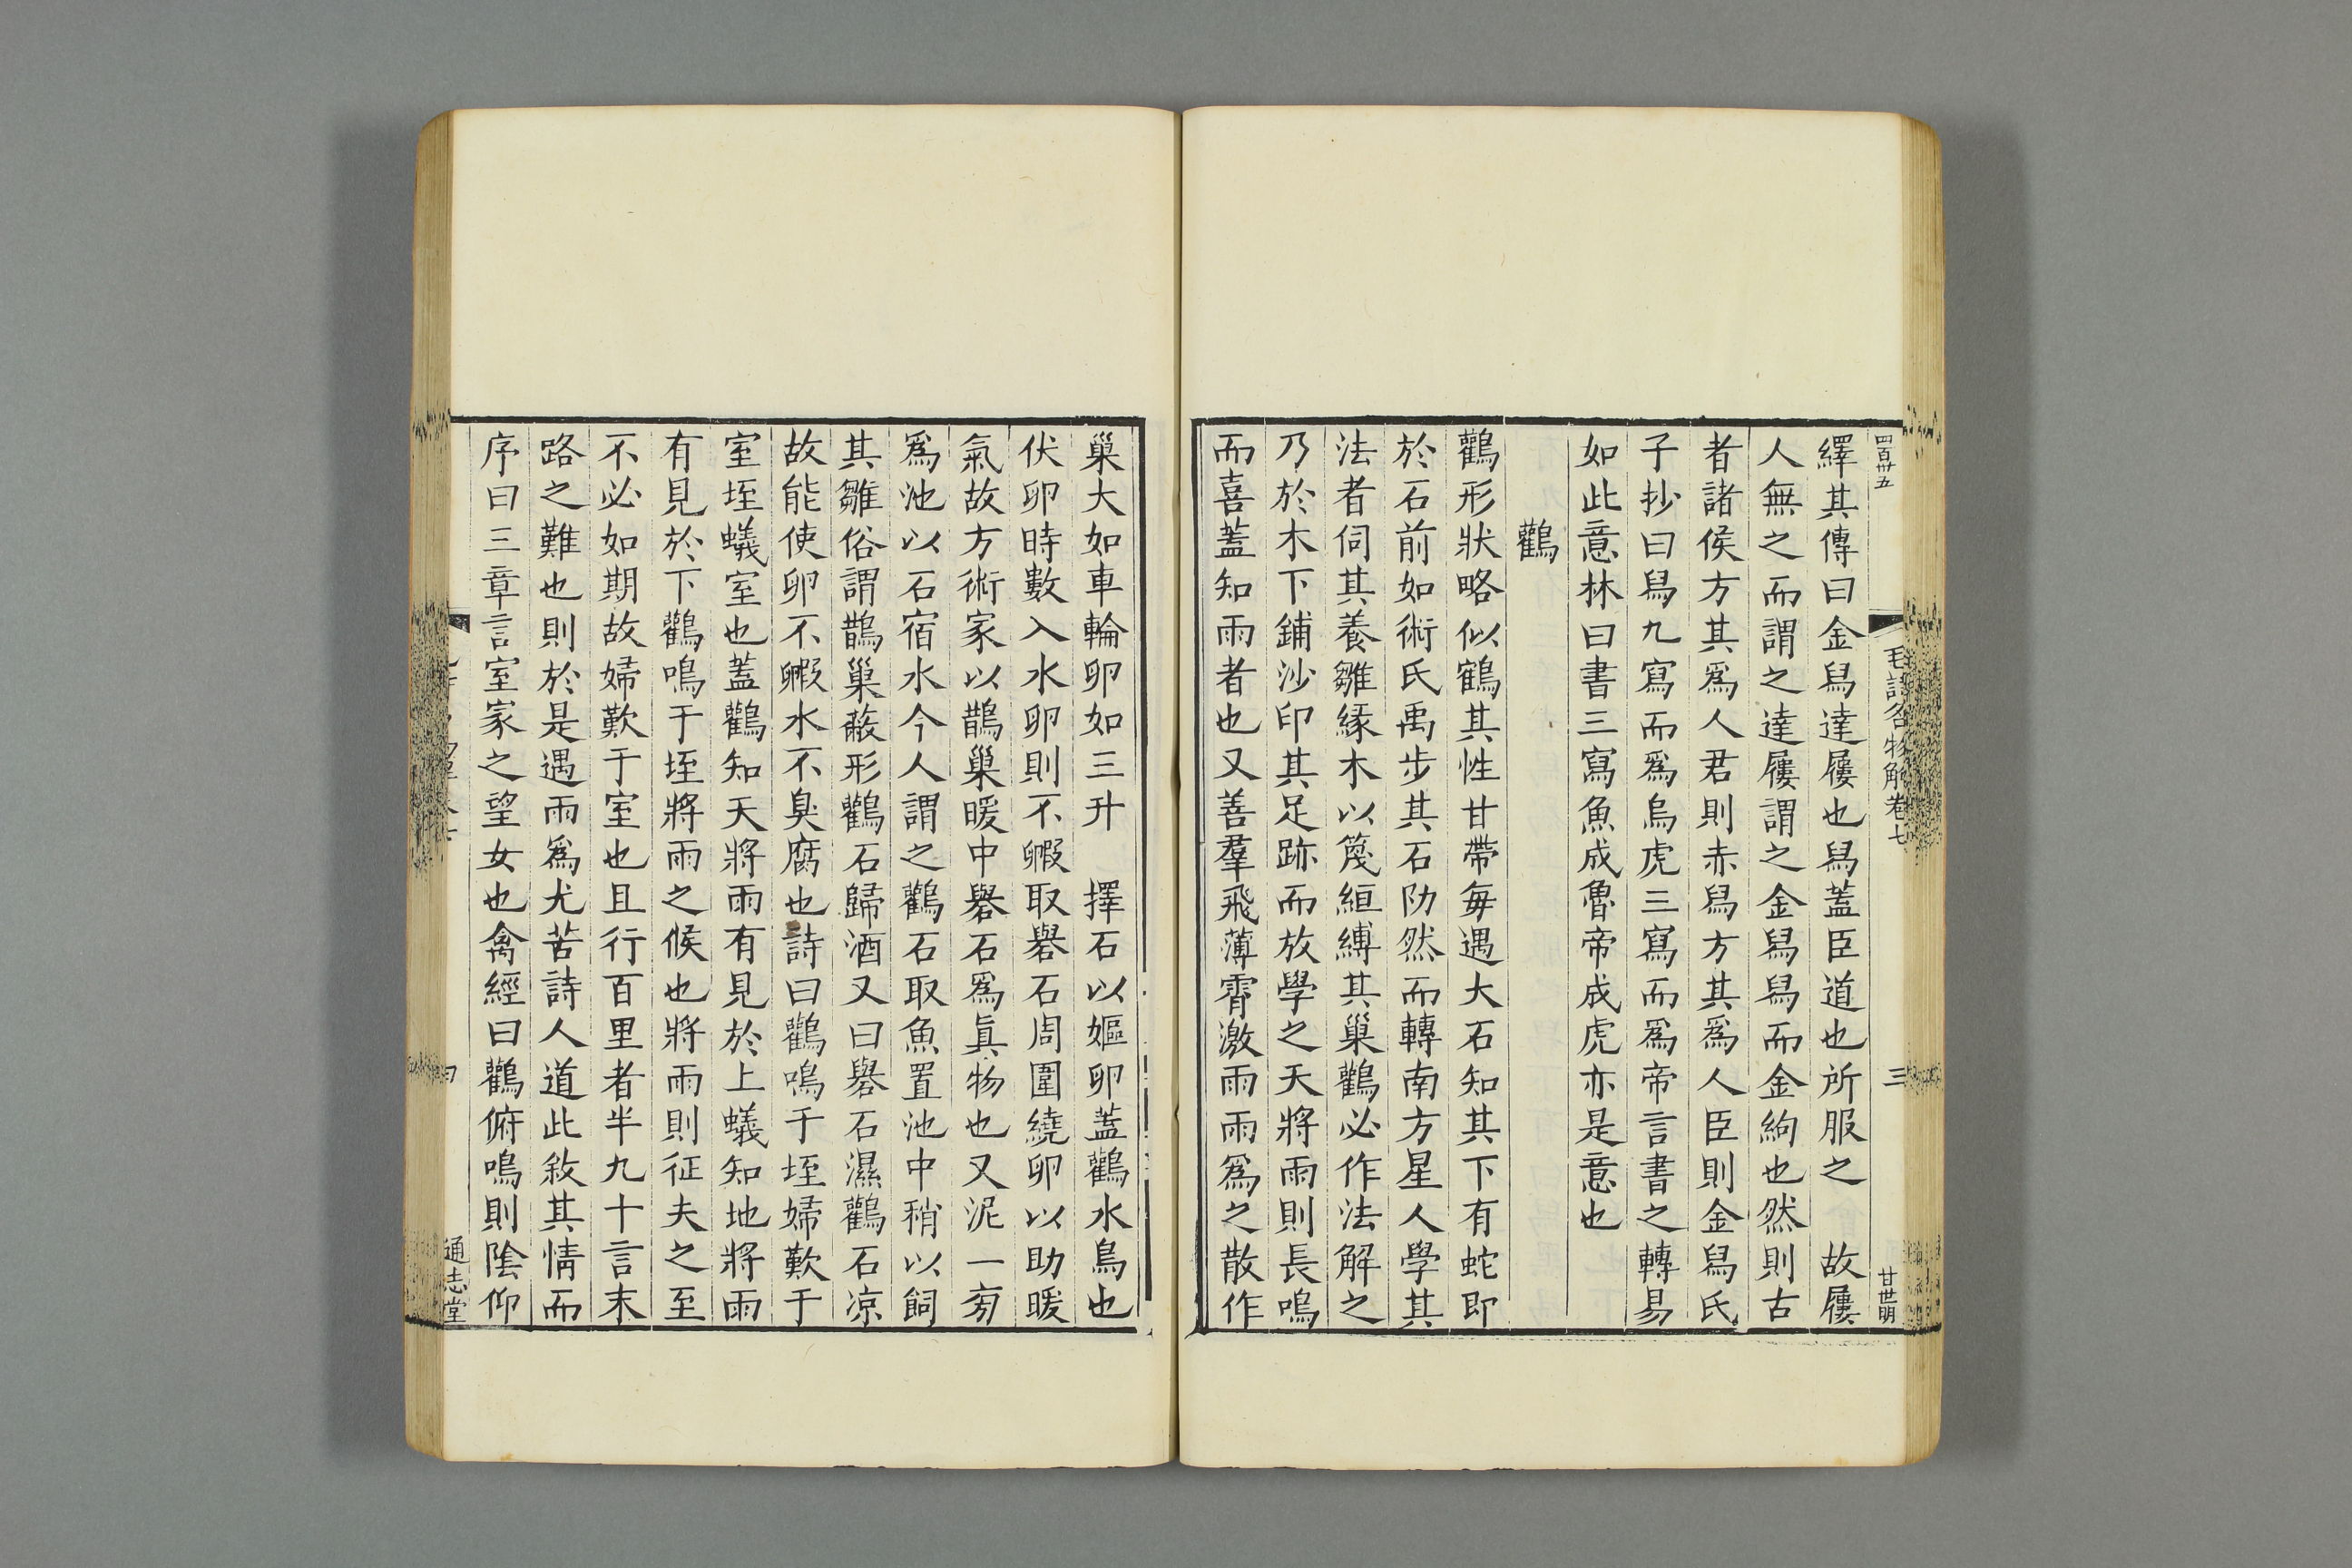 四百卅五
毛詩名物解卷七
三
甘世明
繹其傳曰金舄達屨也舄蓋臣道也所服之　故屨
人無之而謂之達屨謂之金舄舄而金絇也然則古
者諸侯方其爲人君則赤舄方其爲人臣則金舄氏
子抄曰舄九寫而爲烏虎三寫而爲帝言書之轉易
如此意林曰書三寫魚成魯帝成虎亦是意也
鸛
鸛形狀略似鶴其性甘帶每遇大石知其下有蛇即
於石前如術氏禹步其石阞然而轉南方星人學其
法者伺其養雛緣木以篾絙縛其巢鸛必作法解之
乃於木下鋪沙印其足跡而放學之天將雨則長鳴
而喜蓋知雨者也又善羣飛薄霄激雨雨爲之散作
巢大如車輪卵如三升　擇石以嫗卵蓋鸛水鳥也
伏卵時數入水卵則不毈取礜石周圍繞卵以助暖
氣故方術家以鸛巢暖中礜石爲眞物也又泥一㫄
爲池以石宿水今人謂之鸛石取魚置池中稍以飼
其雛俗謂鵲巢蔽形鸛石歸酒又曰礜石濕鸛石凉
故能使卵不毈水不臭腐也詩曰鸛鳴于垤婦歎于
室垤蟻室也蓋鸛知天將雨有見於上蟻知地將雨
有見於下鸛鳴于垤將雨之候也將雨則征夫之至
不必如期故婦歎于室也且行百里者半九十言末
路之難也則於是遇雨爲尤苦詩人道此敘其情而
序曰三章言室家之望女也禽經曰鸛俯鳴則陰仰
通志堂